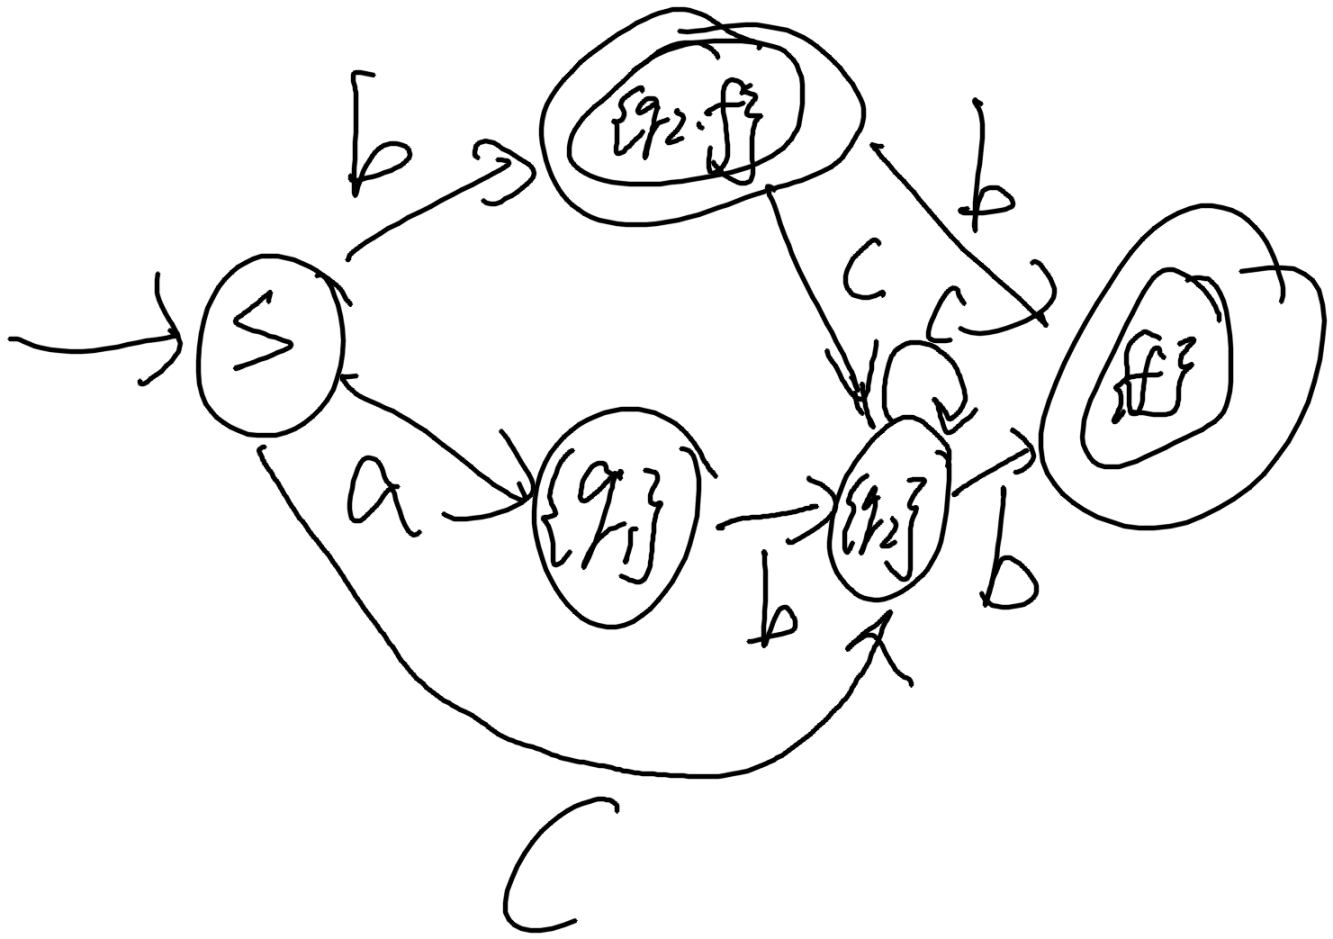 b
{q2.f}
b
c
c
S
{f}
a
{q1}
{q2}
b
b
C